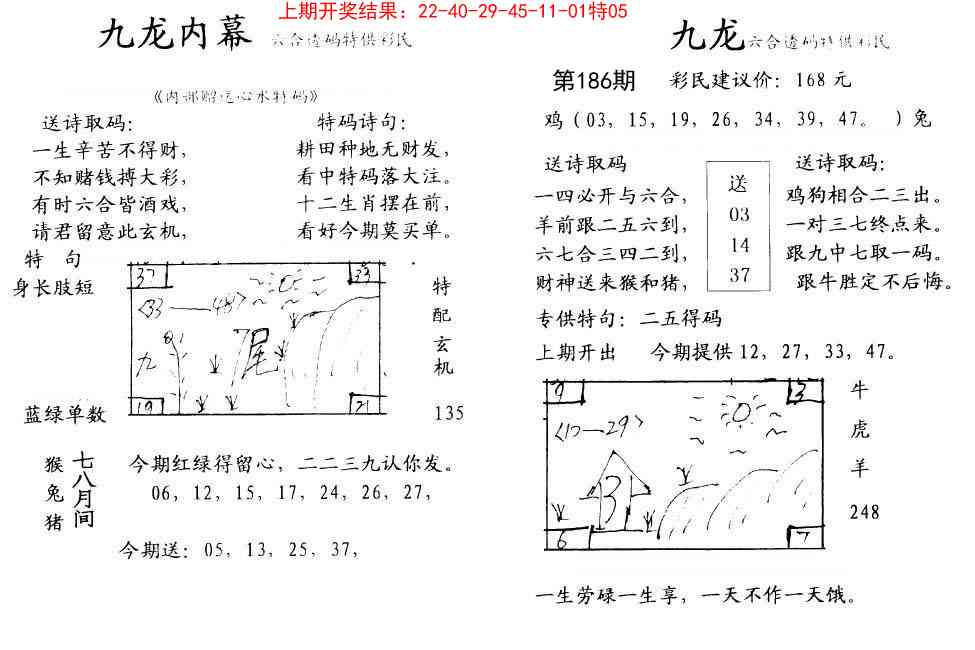 上期开奖结果：22-40-29-45-11-01特05
九龙内幕 六合透码特供彩民
《内部赠送心水特码》
送诗取码：
一生辛苦不得财，
不知赌钱搏大彩，
有时六合皆酒戏，
请君留意此玄机，
特码诗句：
耕田种地无财发，
看中特码落大注。
十二生肖摆在前，
看好今期莫买单。
特 句
身长肢短
蓝绿单数
37
33
<33——48>
九
尾
19
21
特配玄机
135
猴兔猪
七八月间
今期红绿得留心，二二三九认你发。
06，12，15，17，24，26，27，
今期送：05，13，25，37，
九龙 六合透码特供彩民
第186期 彩民建议价：168元
鸡（03，15，19，26，34，39，47。 ）兔
送诗取码
一四必开与六合，
羊前跟二五六到，
六七合三四二到，
财神送来猴和猪，
送
03
14
37
送诗取码：
鸡狗相合二三出。
一对三七终点来。
跟九中七取一码。
跟牛胜定不后悔。
专供特句：二五得码
上期开出 今期提供12，27，33，47。
9
3
<17—29>
3
6
7
牛
虎
羊
248
一生劳碌一生享，一天不作一天饿。